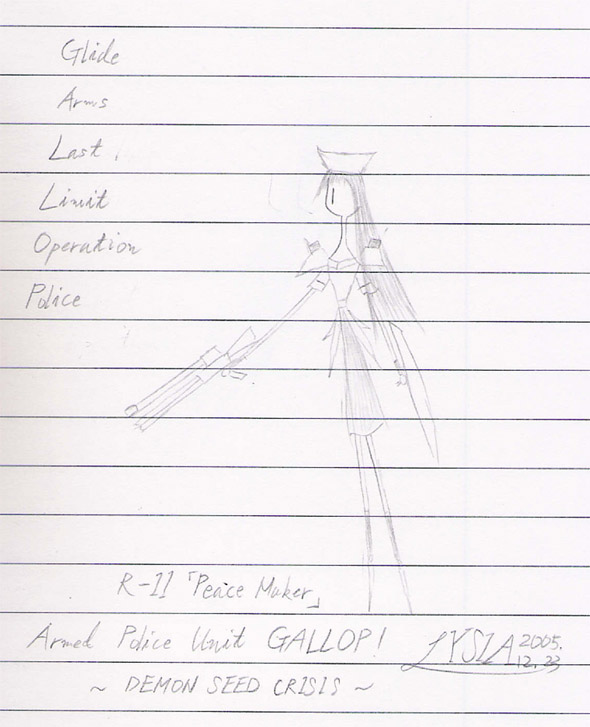 Glide
Arms
Last
Limit
Operation
Police
R-11「Peace Maker」
Armed Police Unit GALLOP!
LYSIA 2005.
12.23
～ DEMON SEED CRISIS ～